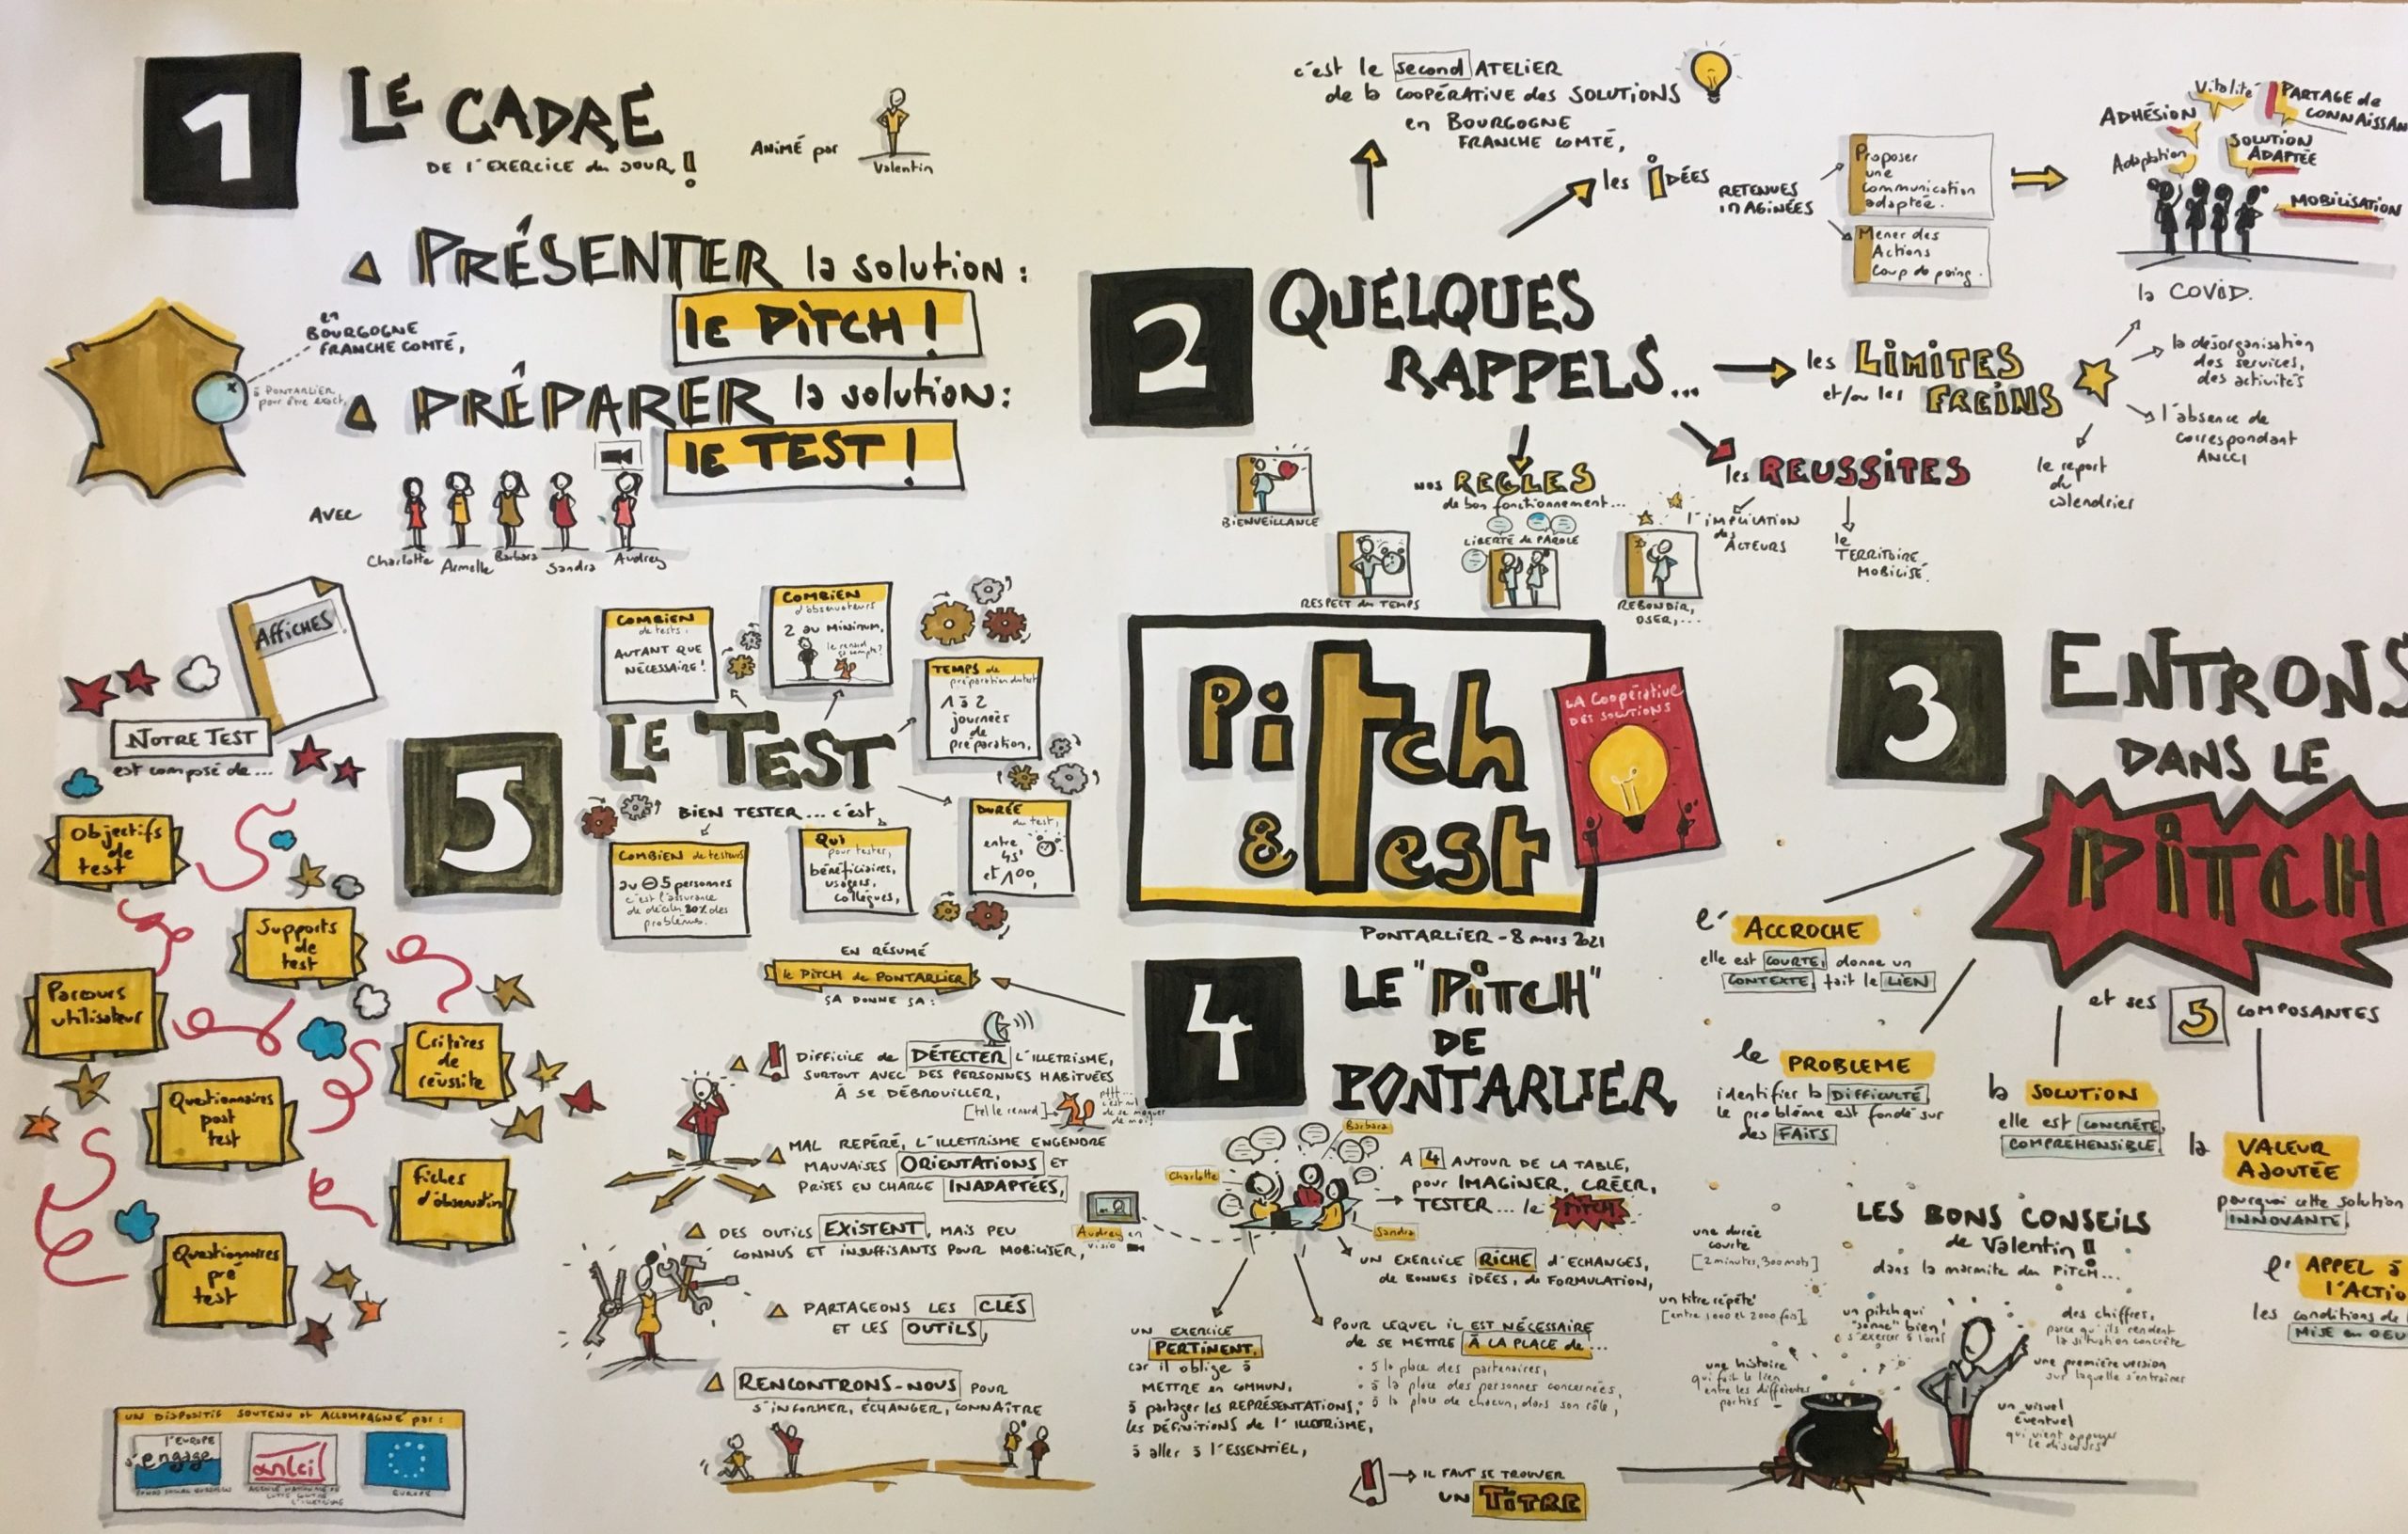 1
LE CADRE
DE L'EXERCICE du JOUR !
ANIMÉ par
Valentin
PRÉSENTER la solution :
le PITCH !
en
BOURGOGNE
FRANCHE COMTÉ,
à PONTARLIER,
pour être exact,
PRÉPARER la solution :
le TEST !
AVEC
Charlotte
Armelle
Barbara
Sandra
Audrey
2
QUELQUES
RAPPELS...
c'est le second ATELIER
de la COOPÉRATIVE des SOLUTIONS
en BOURGOGNE
FRANCHE COMTÉ,
les iDÉES
RETENUES
IMAGINÉES
Proposer
une
communication
adaptée.
Mener des
Actions
Coup de poing.
ADHÉSION
Vitalité
PARTAGE de
CONNAISSAN
Adaptation
SOLUTION
ADAPTÉE
MOBILISATION
les LIMITES
et/ou les FREINS
la COVID.
la désorganisation
des services,
des activités
l'absence de
correspondant
ANLCI
le report
du
calendrier
les RÉUSSITES
l'IMPLICATION
des
ACTEURS
le
TERRITOIRE
MOBILISÉ.
nos RÈGLES
de bon fonctionnement...
BIENVEILLANCE
RESPECT du TEMPS
LIBERTÉ de PAROLE
REBONDIR,
OSER,...
Pitch
& test
LA Coopérative
DES SOLUTIONS
PONTARLIER - 8 mars 2021
3
ENTRONS
DANS LE
PITCH
et ses 5 COMPOSANTES
l' ACCROCHE
elle est COURTE, donne un
CONTEXTE, fait le LIEN
le PROBLEME
identifier la DIFFICULTÉ
le problème est fondé sur
des FAITS
la SOLUTION
elle est CONCRÈTE,
COMPRÉHENSIBLE,
la VALEUR
AJOUTÉE
pourquoi cette solution
INNOVANTE,
l' APPEL à
l'ACTIO
les conditions de
MISE en OEU
LES BONS CONSEILS
de Valentin !!
dans la marmite du PITCH...
une durée
courte
[2 minutes, 300 mots]
un titre répété
[entre 1000 et 2000 fois]
un pitch qui
"sonne" bien!
s'exercer à l'oral
des chiffres,
parce qu'ils rendent
la situation concrète
une histoire
qui fait le lien
entre les différentes
parties
une première version
sur laquelle s'entraîner
un visuel
éventuel
qui vient appuyer
le discours
4
LE "PITCH"
DE
PONTARLIER
Barbara
Charlotte
Sandra
Audrey en
visio
A 4 AUTOUR DE LA TABLE,
pour IMAGINER, CRÉER,
TESTER... le PITCH
UN EXERCICE RICHE D'ECHANGES,
de BONNES IDÉES, de FORMULATION,
UN EXERCICE
PERTINENT,
car il oblige à
METTRE en COMMUN,
à partager les REPRÉSENTATIONS,
les DÉFINITIONS de l'ILLETTRISME,
à aller à l'ESSENTIEL,
POUR LEQUEL IL EST NÉCESSAIRE
de SE METTRE À LA PLACE de...
• à la place des partenaires,
• à la place des personnes concernées,
• à la place de chacun, dans son rôle,
IL FAUT SE TROUVER
UN TITRE
EN RÉSUMÉ
le PITCH de PONTARLIER
SA DONNE SA :
DIFFICILE de DÉTECTER L'ILLETRISME,
SURTOUT AVEC DES PERSONNES HABITUÉES
À SE DÉBROUILLER,
[tel le renard]
pfff...
c'est nul
de se moquer
de moi!
MAL REPÉRÉ, L'ILLETTRISME ENGENDRE
MAUVAISES ORIENTATIONS ET
PRISES EN CHARGE INADAPTÉES,
DES OUTILS EXISTENT, MAIS PEU
CONNUS ET INSUFFISANTS POUR MOBILISER,
PARTAGEONS LES CLÉS
ET LES OUTILS,
RENCONTRONS-NOUS POUR
S'INFORMER, ÉCHANGER, CONNAÎTRE
5
LE TEST
COMBIEN
de tests,
AUTANT QUE
NÉCESSAIRE!
COMBIEN
d'observateurs
2 au MINIMUM,
le renard
ça compte?
TEMPS de
préparation du test
1 à 2
journées
de
préparation,
DURÉE
du test,
entre
45'
et 1h00,
BIEN TESTER... c'est
COMBIEN de testeurs
au moins 5 personnes
c'est l'assurance
de déceler 80% des
problèmes.
QUI
pour tester,
bénéficiaires,
usagers,
collègues,
AFFICHES
NOTRE TEST
est composé de...
Objectifs
de
test
Supports
de
test
Parcours
utilisateur
Critères
de
réussite
Questionnaires
post
test
Fiches
d'observation
Questionnaires
pré
test
UN DISPOSITIF SOUTENU et ACCOMPAGNÉ par :
l'EUROPE
s'engage
FONDS SOCIAL EUROPÉEN
anlci
AGENCE NATIONALE de
LUTTE CONTRE
L'ILLETTRISME
EUROPE